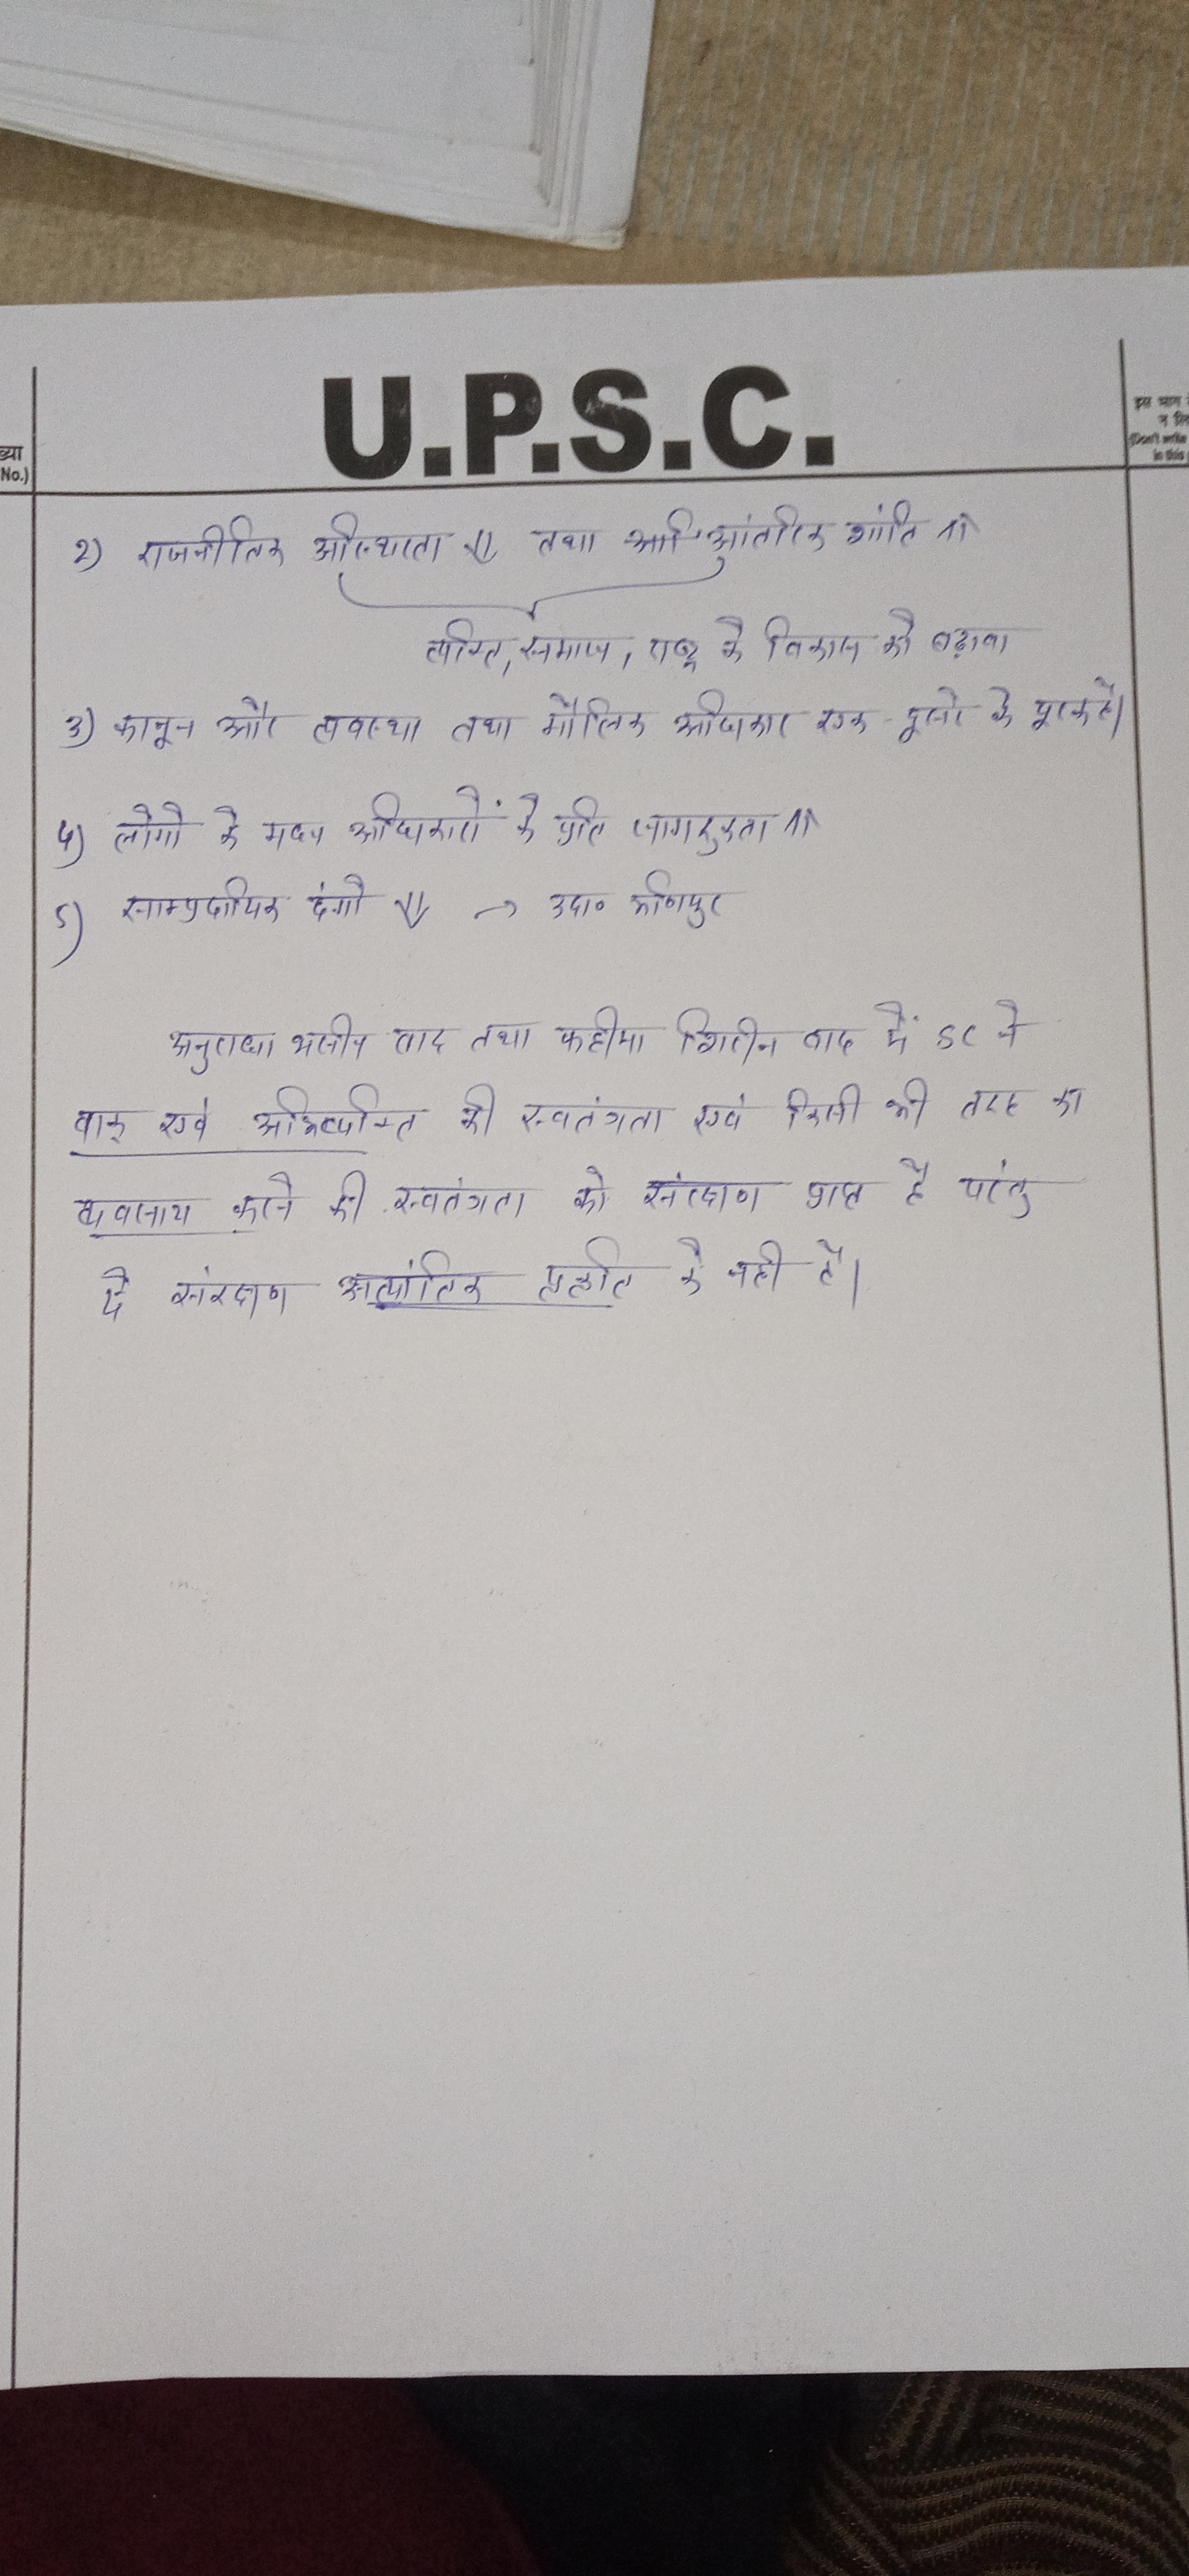 U.P.S.C.
ख्या
No.)
इस भाग
न लि
(Don't write
in this
2) राजनीतिक अस्थिरता ⇓ तथा आंतरिक शांति ⇑
व्यक्ति, समाज, राष्ट्र के विकास को बढ़ावा
3) कानून और व्यवस्था तथा मौलिक अधिकार एक-दूसरे के पूरक है।
4) लोगों के मध्य अधिकारों के प्रति जागरुकता ⇑
5) साम्प्रदायिक दंगों ⇓ → उदा० मणिपुर
अनुराधा भसीन वाद तथा फहीमा शिरीन वाद में SC ने
वाक् एवं अभिव्यक्ति की स्वतंत्रता एवं किसी भी तरह का
व्यवसाय करने की स्वतंत्रता को संरक्षण प्राप्त है परंतु
ये संरक्षण आत्यांतिक प्रकृति के नही है।